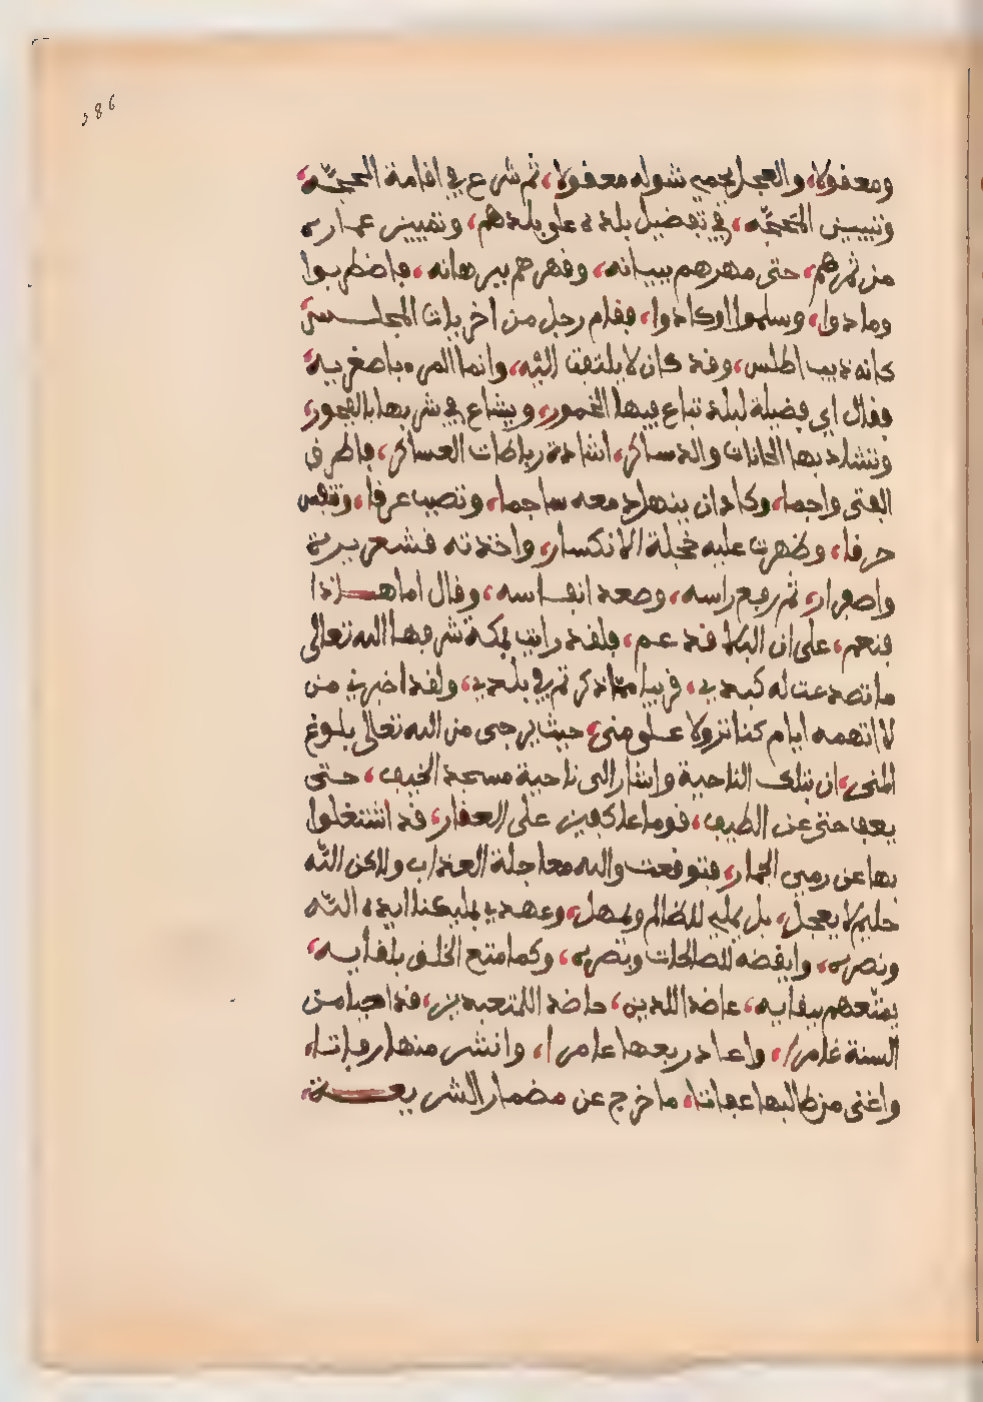 386
ومعقولا، والفحل يحمي شوله معقولا، ثم شرع في اقامة الحجّة،
وتبيين المحجّه، في تفضيل بلده على بلدهم، وتمييز
من ثمرهم، حتى مهرهم ببيانه، وقهرهم ببرهانه، فاضطربوا
ومادوا، وسلموا او كادوا، فقام رجل من اخريات المجلس
كانه ذيب اطلس، وقد كان لا يلتفت اليه، وانما المرء باصغريه
فقال اي فضيلة لبلد تباع فيها الخمور، ويشاع في شربها بالفجور
وتشاد بها الحانات والدساكر، اشادة رباطات العساكر، فاطرق
الفتى واجما، وكاد ان ينهار دمعه ساجما، وتصبب عرقا، وتنفس
حرقا، وظهرت عليه خجلة الانكسار، واخذته قشعريرة
واصفرار، ثم رفع راسه، وصعد انفاسه، وقال اما هذا
فنعم، على ان البلا قد عم، فلقد رايت بمكة شرفها الله تعالى
ما تصدعت له كبدي، قريبا مما ذكرتم في بلدي، ولقد اخبرني من
لا اتهمه ايام كنا نزولا على منى، حيث يرجى من الله تعالى بلوغ
المنى، ان بتلك الناحية واشار الى ناحية مسجد الخيف، حتى
يعف حتى عن الطيف، قوما عاكفين على العقار، قد اشتغلوا
بها عن رمي الجمار، فتوقعت والله معاجلة العذاب ولاكن الله
حليم لا يعجل، بل يملي للظالم ويمهل، وعهدي بمليكنا ايده الله
ونصره، وايقضه للصالحات وبصره، وكما متع الخلق بلقايه،
يمتعهم ببقايه، عاضدا للدين، حاضدا للمتعبدين، قد احيا من
السنة غامرا، واعاد ربعها عامرا، وانشر منها رفاتا،
واغنى من طالبها عفاتا، ما خرج عن مضمار الشريعة،